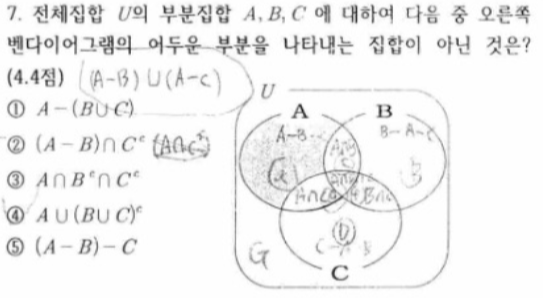 7. 전체집합 U의 부분집합 A, B, C 에 대하여 다음 중 오른쪽
벤다이어그램의 어두운 부분을 나타내는 집합이 아닌 것은?
(4.4점) (A-B)∪(A-C)
① A-(B∪C)
② (A-B)∩Cᶜ
③ A∩Bᶜ∩Cᶜ
④ A∪(B∪C)ᶜ
⑤ (A-B)-C
U
A B
A-B B-A-C
A∩B
A∩C B∩C
G
C